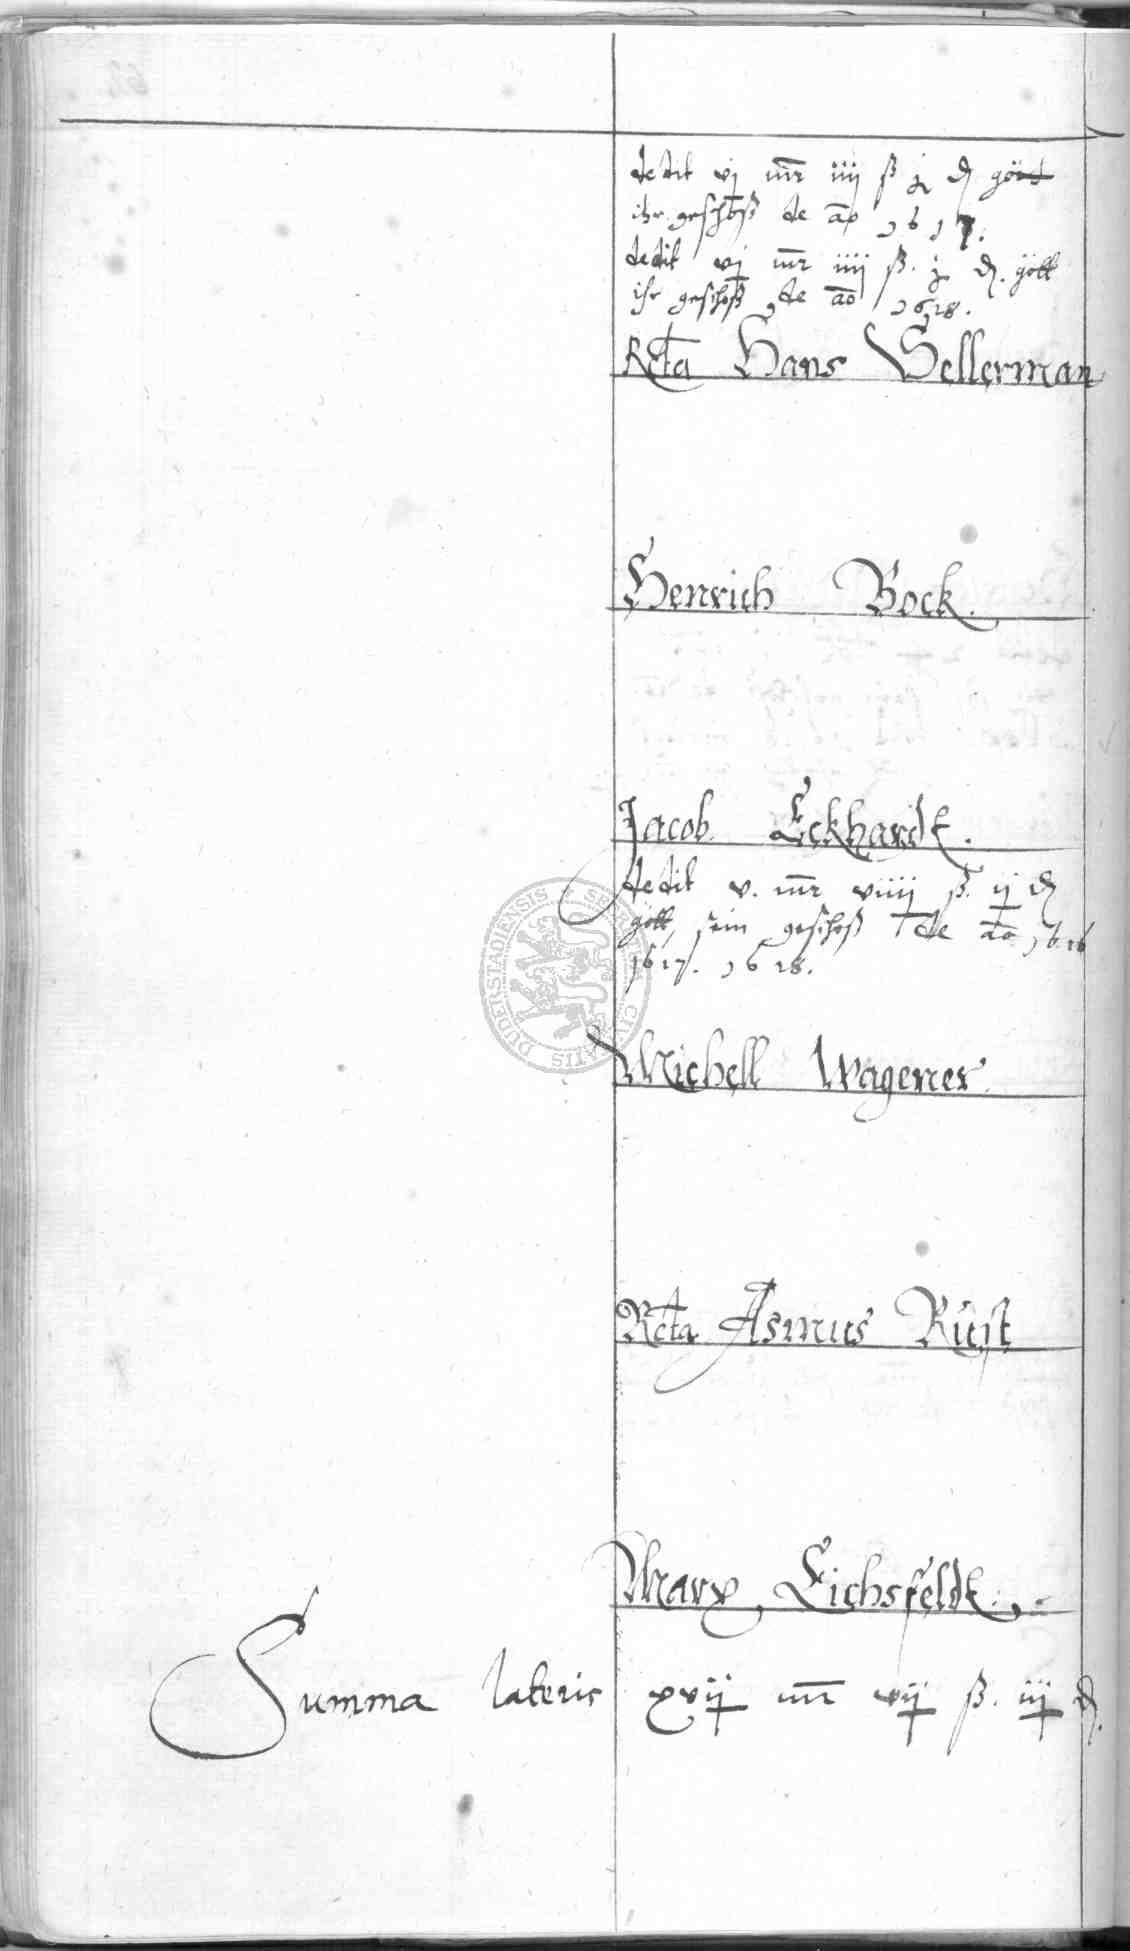 dedit vj mr iiij ß j d gött
ihr geschoß de ao 1617.
dedit vj mr iiij ß. j d. gött
ihr geschoß de ao 1618.
Rcta Hans Hellerman
Henrich Bock.
Jacob Eckhardt.
dedit v. mr viiij ß. ij d
gött, sein geschoß de ao 1616
1617. 1618.
SECRETUM CIVITATIS DUDERSTADIENSIS
Michell Wagener
Rcta Asmus Rust
Marx Eichsfeldt.
Summa lateris xvij mr vij ß. iij d.